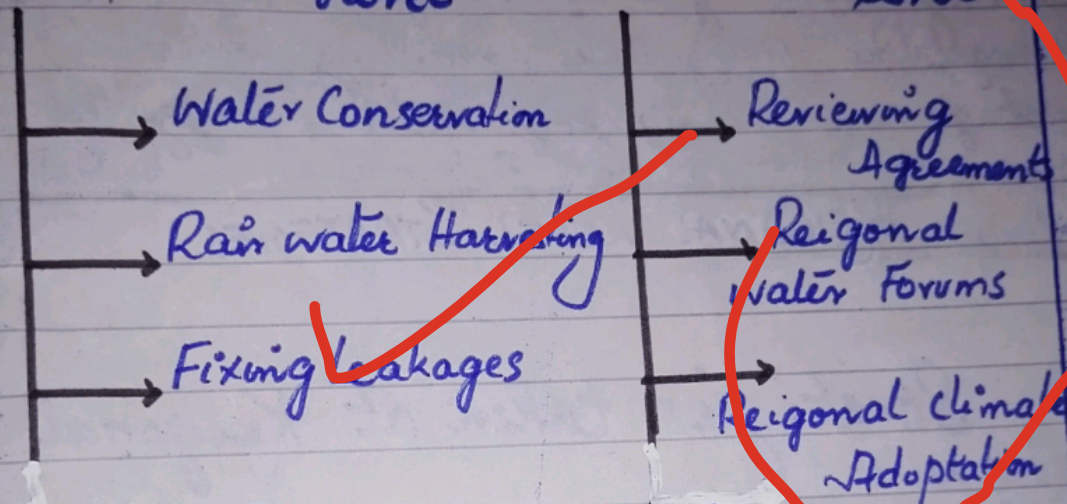 Water Conservation
Rain water Harvesting
Fixing leakages
Reviewing
Agreements
Reigonal
water Forums
Reigonal climate
Adoptation